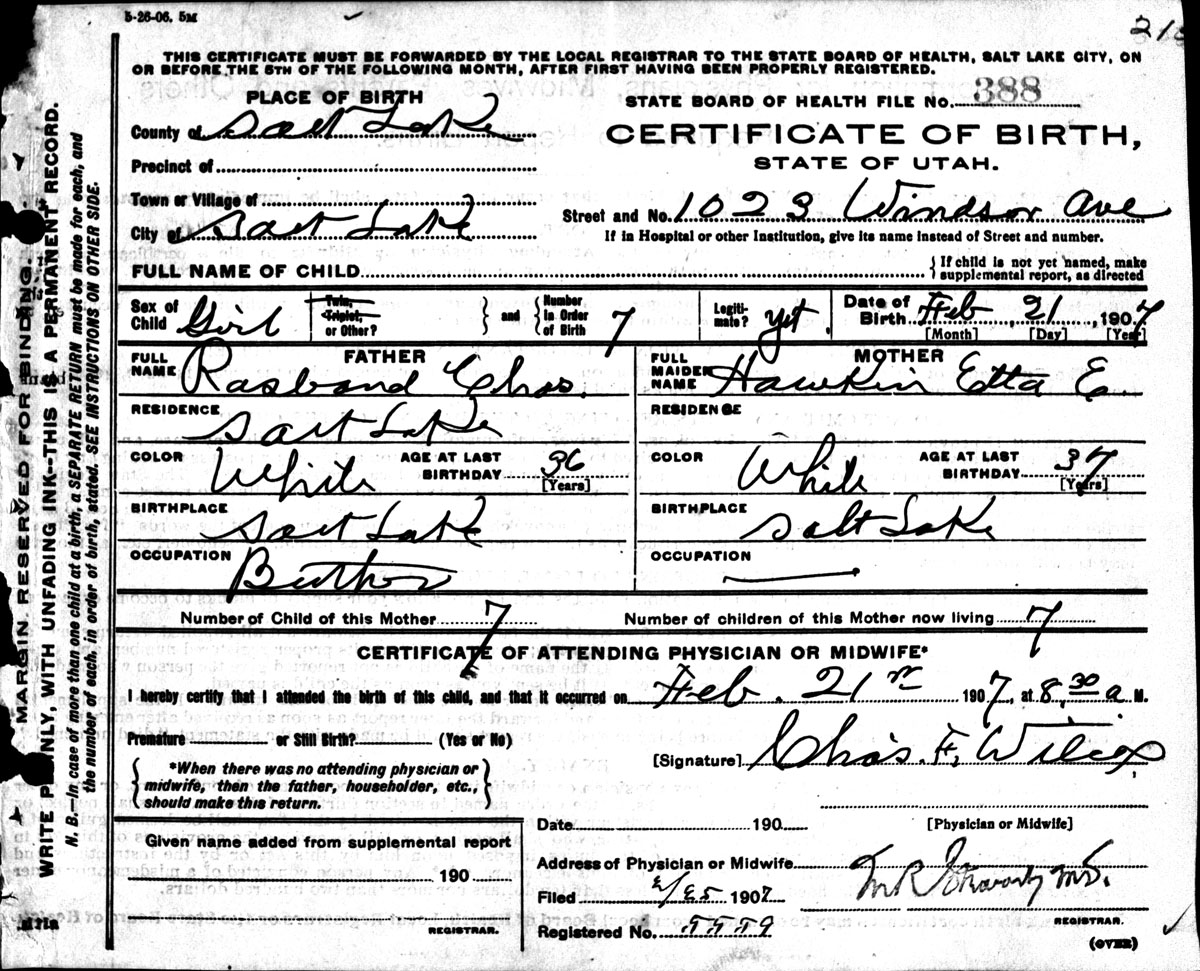 5-26-06. 5M
THIS CERTIFICATE MUST BE FORWARDED BY THE LOCAL REGISTRAR TO THE STATE BOARD OF HEALTH, SALT LAKE CITY, ON
OR BEFORE THE 5TH OF THE FOLLOWING MONTH, AFTER FIRST HAVING BEEN PROPERLY REGISTERED.
PLACE OF BIRTH
STATE BOARD OF HEALTH FILE No. 388
County of Salt Lake
CERTIFICATE OF BIRTH,
STATE OF UTAH.
Precinct of
Town or Village of
Street and No. 1023 Windsor Ave
City of Salt Lake
If in Hospital or other Institution, give its name instead of Street and number.
FULL NAME OF CHILD
If child is not yet named, make
supplemental report, as directed
Sex of Child Girl
Twin, Triplet, or Other?
and
Number in Order of Birth 7
Legiti-mate? yet.
Date of Birth Feb 21, 1907
[Month] [Day] [Year]
FATHER
FULL NAME Rasband Chas.
RESIDENCE Salt Lake
COLOR White
AGE AT LAST BIRTHDAY 36
[Years]
BIRTHPLACE Salt Lake
OCCUPATION
MOTHER
FULL MAIDEN NAME Hawkin Etta E.
RESIDENCE
COLOR White
AGE AT LAST BIRTHDAY 37
[Years]
BIRTHPLACE Salt Lake
OCCUPATION
Number of Child of this Mother 7
Number of children of this Mother now living 7
CERTIFICATE OF ATTENDING PHYSICIAN OR MIDWIFE*
I hereby certify that I attended the birth of this child, and that it occurred on Feb. 21 1907, at 8.30 a M.
Premature or Still Birth? (Yes or No)
[Signature] Chas. F. Wilcox
*When there was no attending physician or
midwife, then the father, householder, etc.,
should make this return.
Date 190
[Physician or Midwife]
Given name added from supplemental report
190
REGISTRAR.
Address of Physician or Midwife
Filed 2/25 1907
M.D.
REGISTRAR.
Registered No.
(OVER)
MARGIN RESERVED FOR BINDING.
WRITE PLAINLY, WITH UNFADING INK--THIS IS A PERMANENT RECORD.
N. B.--In case of more than one child at a birth, a SEPARATE RETURN must be made for each, and
the number of each, in order of birth, stated. SEE INSTRUCTIONS ON OTHER SIDE.